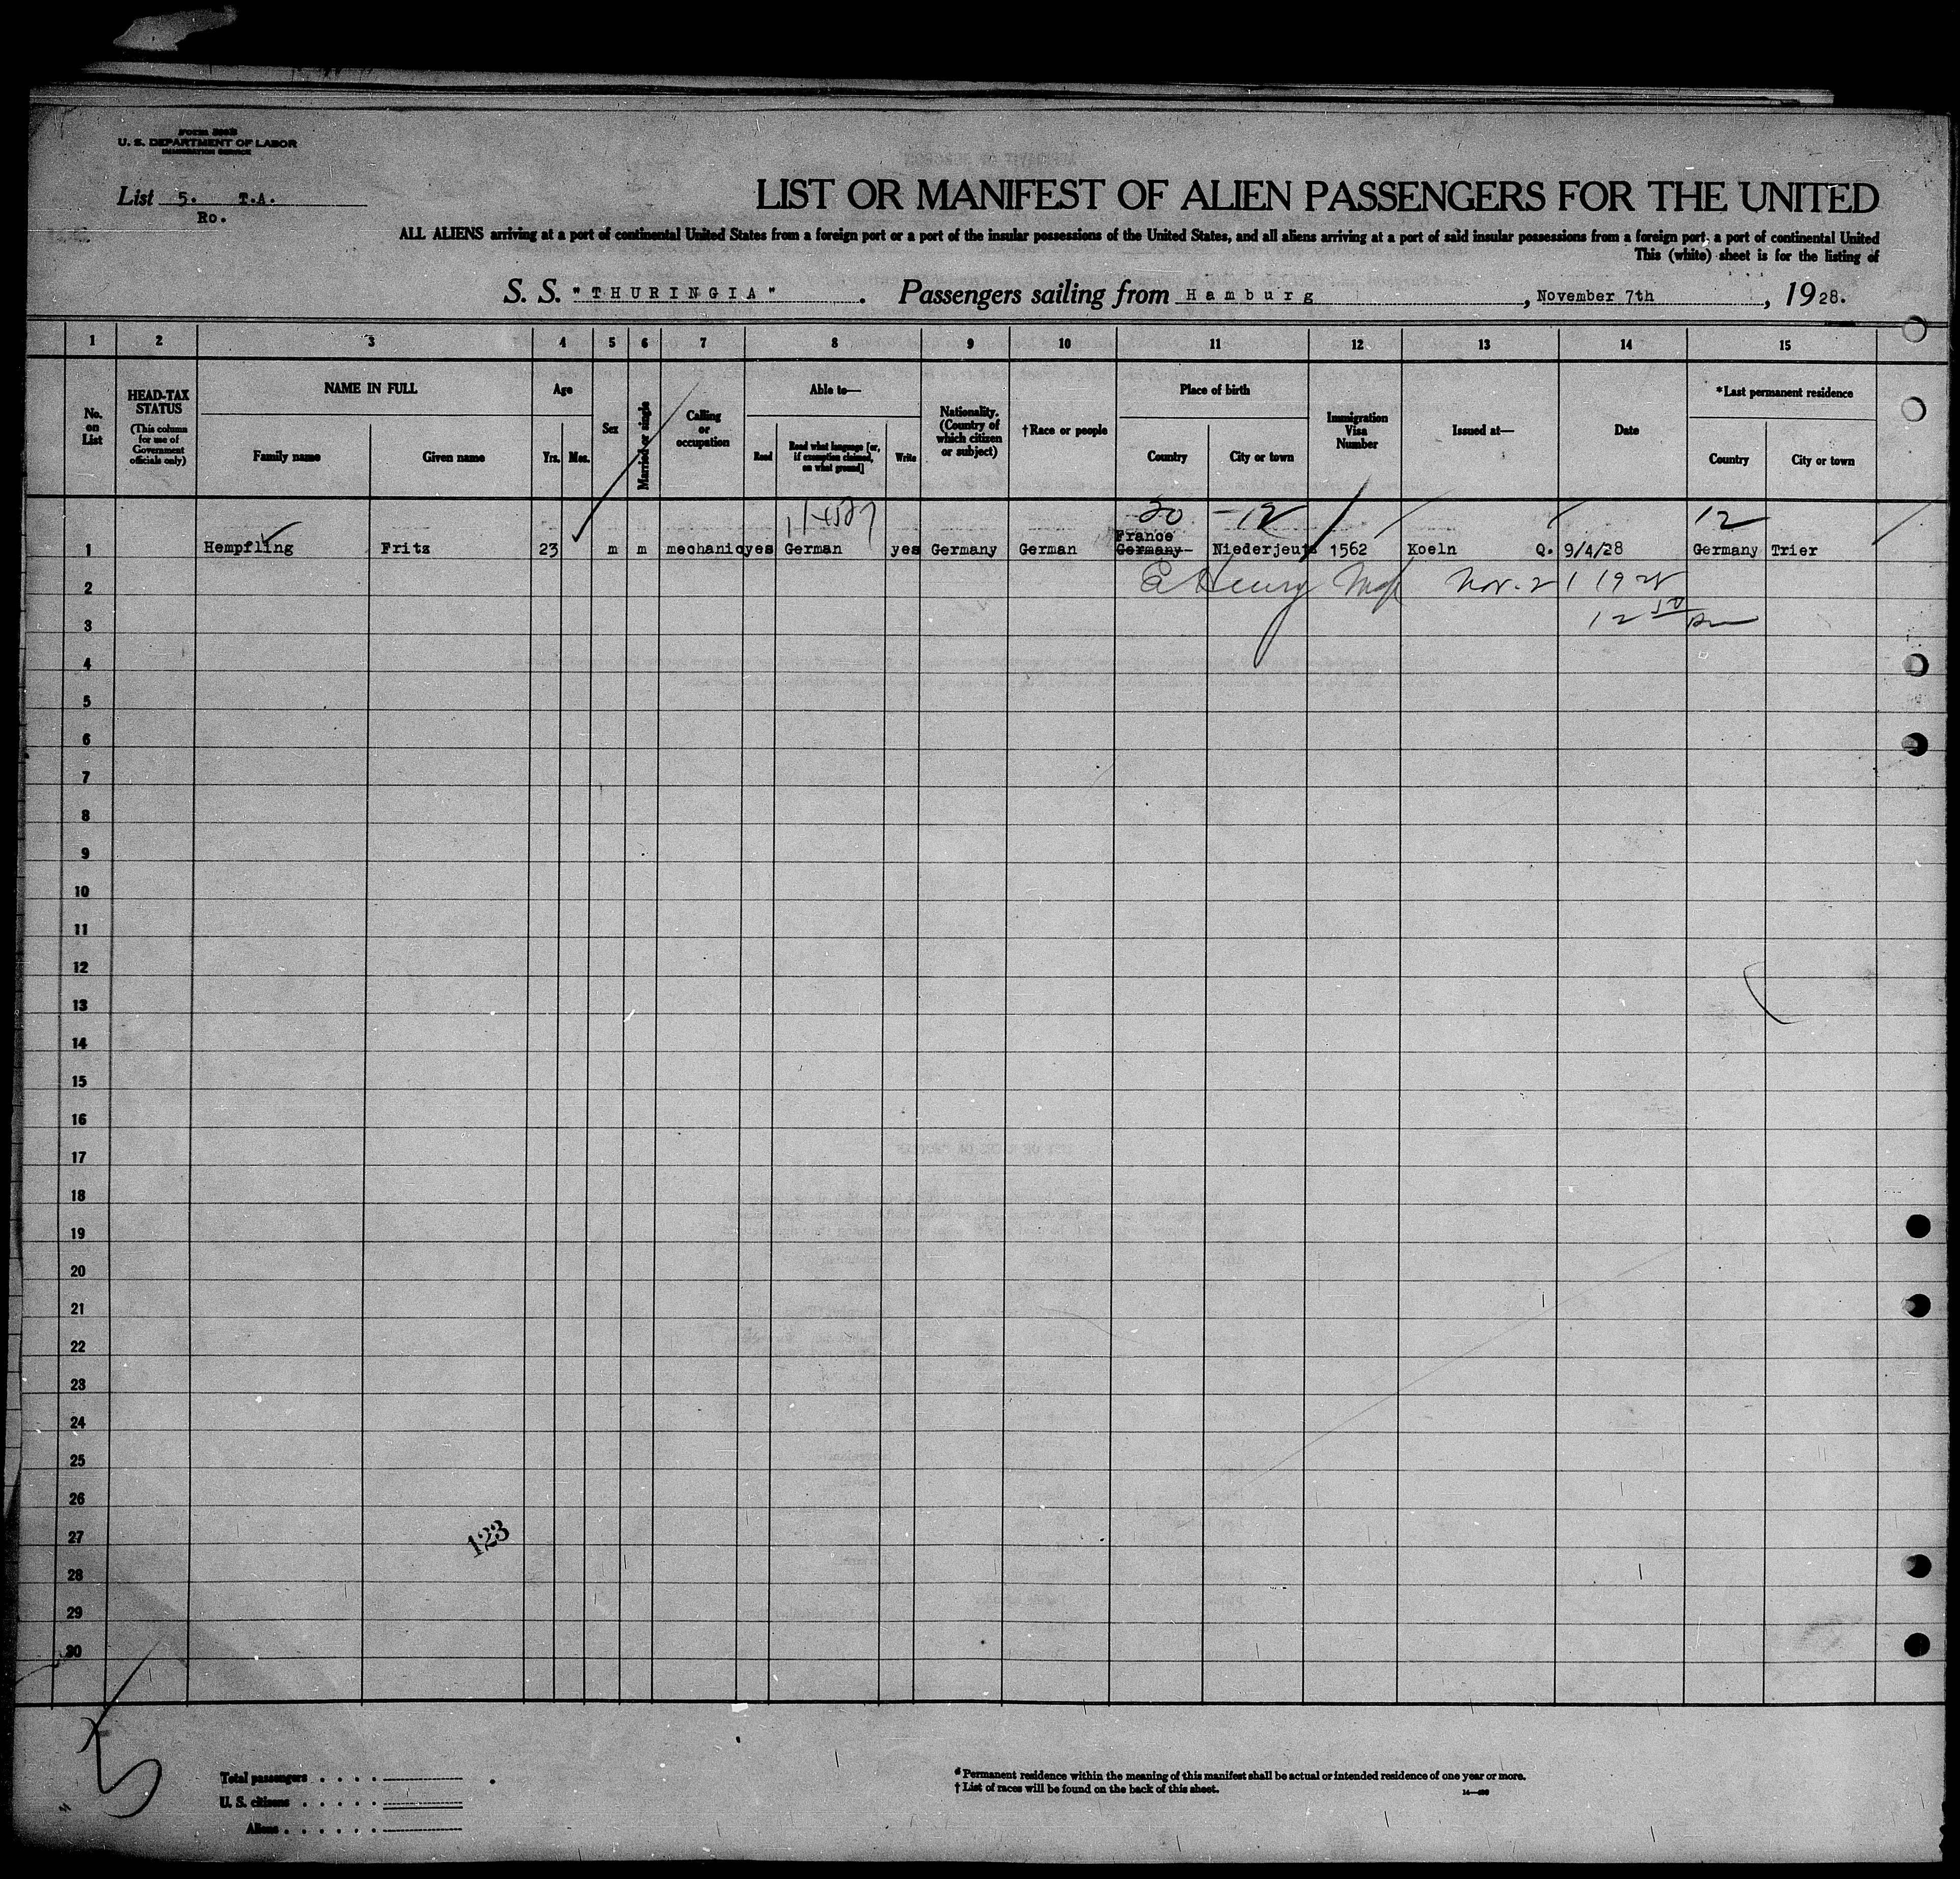 U. S. DEPARTMENT OF LABOR
IMMIGRATION SERVICE
List 5. T.A.
Ro.
LIST OR MANIFEST OF ALIEN PASSENGERS FOR THE UNITED
ALL ALIENS arriving at a port of continental United States from a foreign port or a port of the insular possessions of the United States, and all aliens arriving at a port of said insular possessions from a foreign port, a port of continental United
This (white) sheet is for the listing of
S. S. "THURINGIA". Passengers sailing from Hamburg, November 7th, 1928.
1 2 3 4 5 6 7 8 9 10 11 12 13 14 15
No. on List
HEAD-TAX STATUS (This column for use of Government officials only)
NAME IN FULL
Family name Given name
Age
Yrs. Mos.
Sex
Married or single
Calling or occupation
Able to—
Read Read what language [or, if exemption claimed, on what ground] Write
Nationality. (Country of which citizen or subject)
†Race or people
Place of birth
Country City or town
Immigration Visa Number
Issued at—
Date
*Last permanent residence
Country City or town
20 -12 12
France
1 Hempfling Fritz 23 m m mechanic yes German yes Germany German Germany Niederjeutz 1562 Koeln Q. 9/4/28 Germany Trier
2 E Henry Nov. 21 1928
3 12 50 pm
4
5
6
7
8
9
10
11
12
13
14
15
16
17
18
19
20
21
22
23
24
25
26
27 123
28
29
30
5
Total passengers
U. S. citizens
Aliens
* Permanent residence within the meaning of this manifest shall be actual or intended residence of one year or more.
† List of races will be found on the back of this sheet.